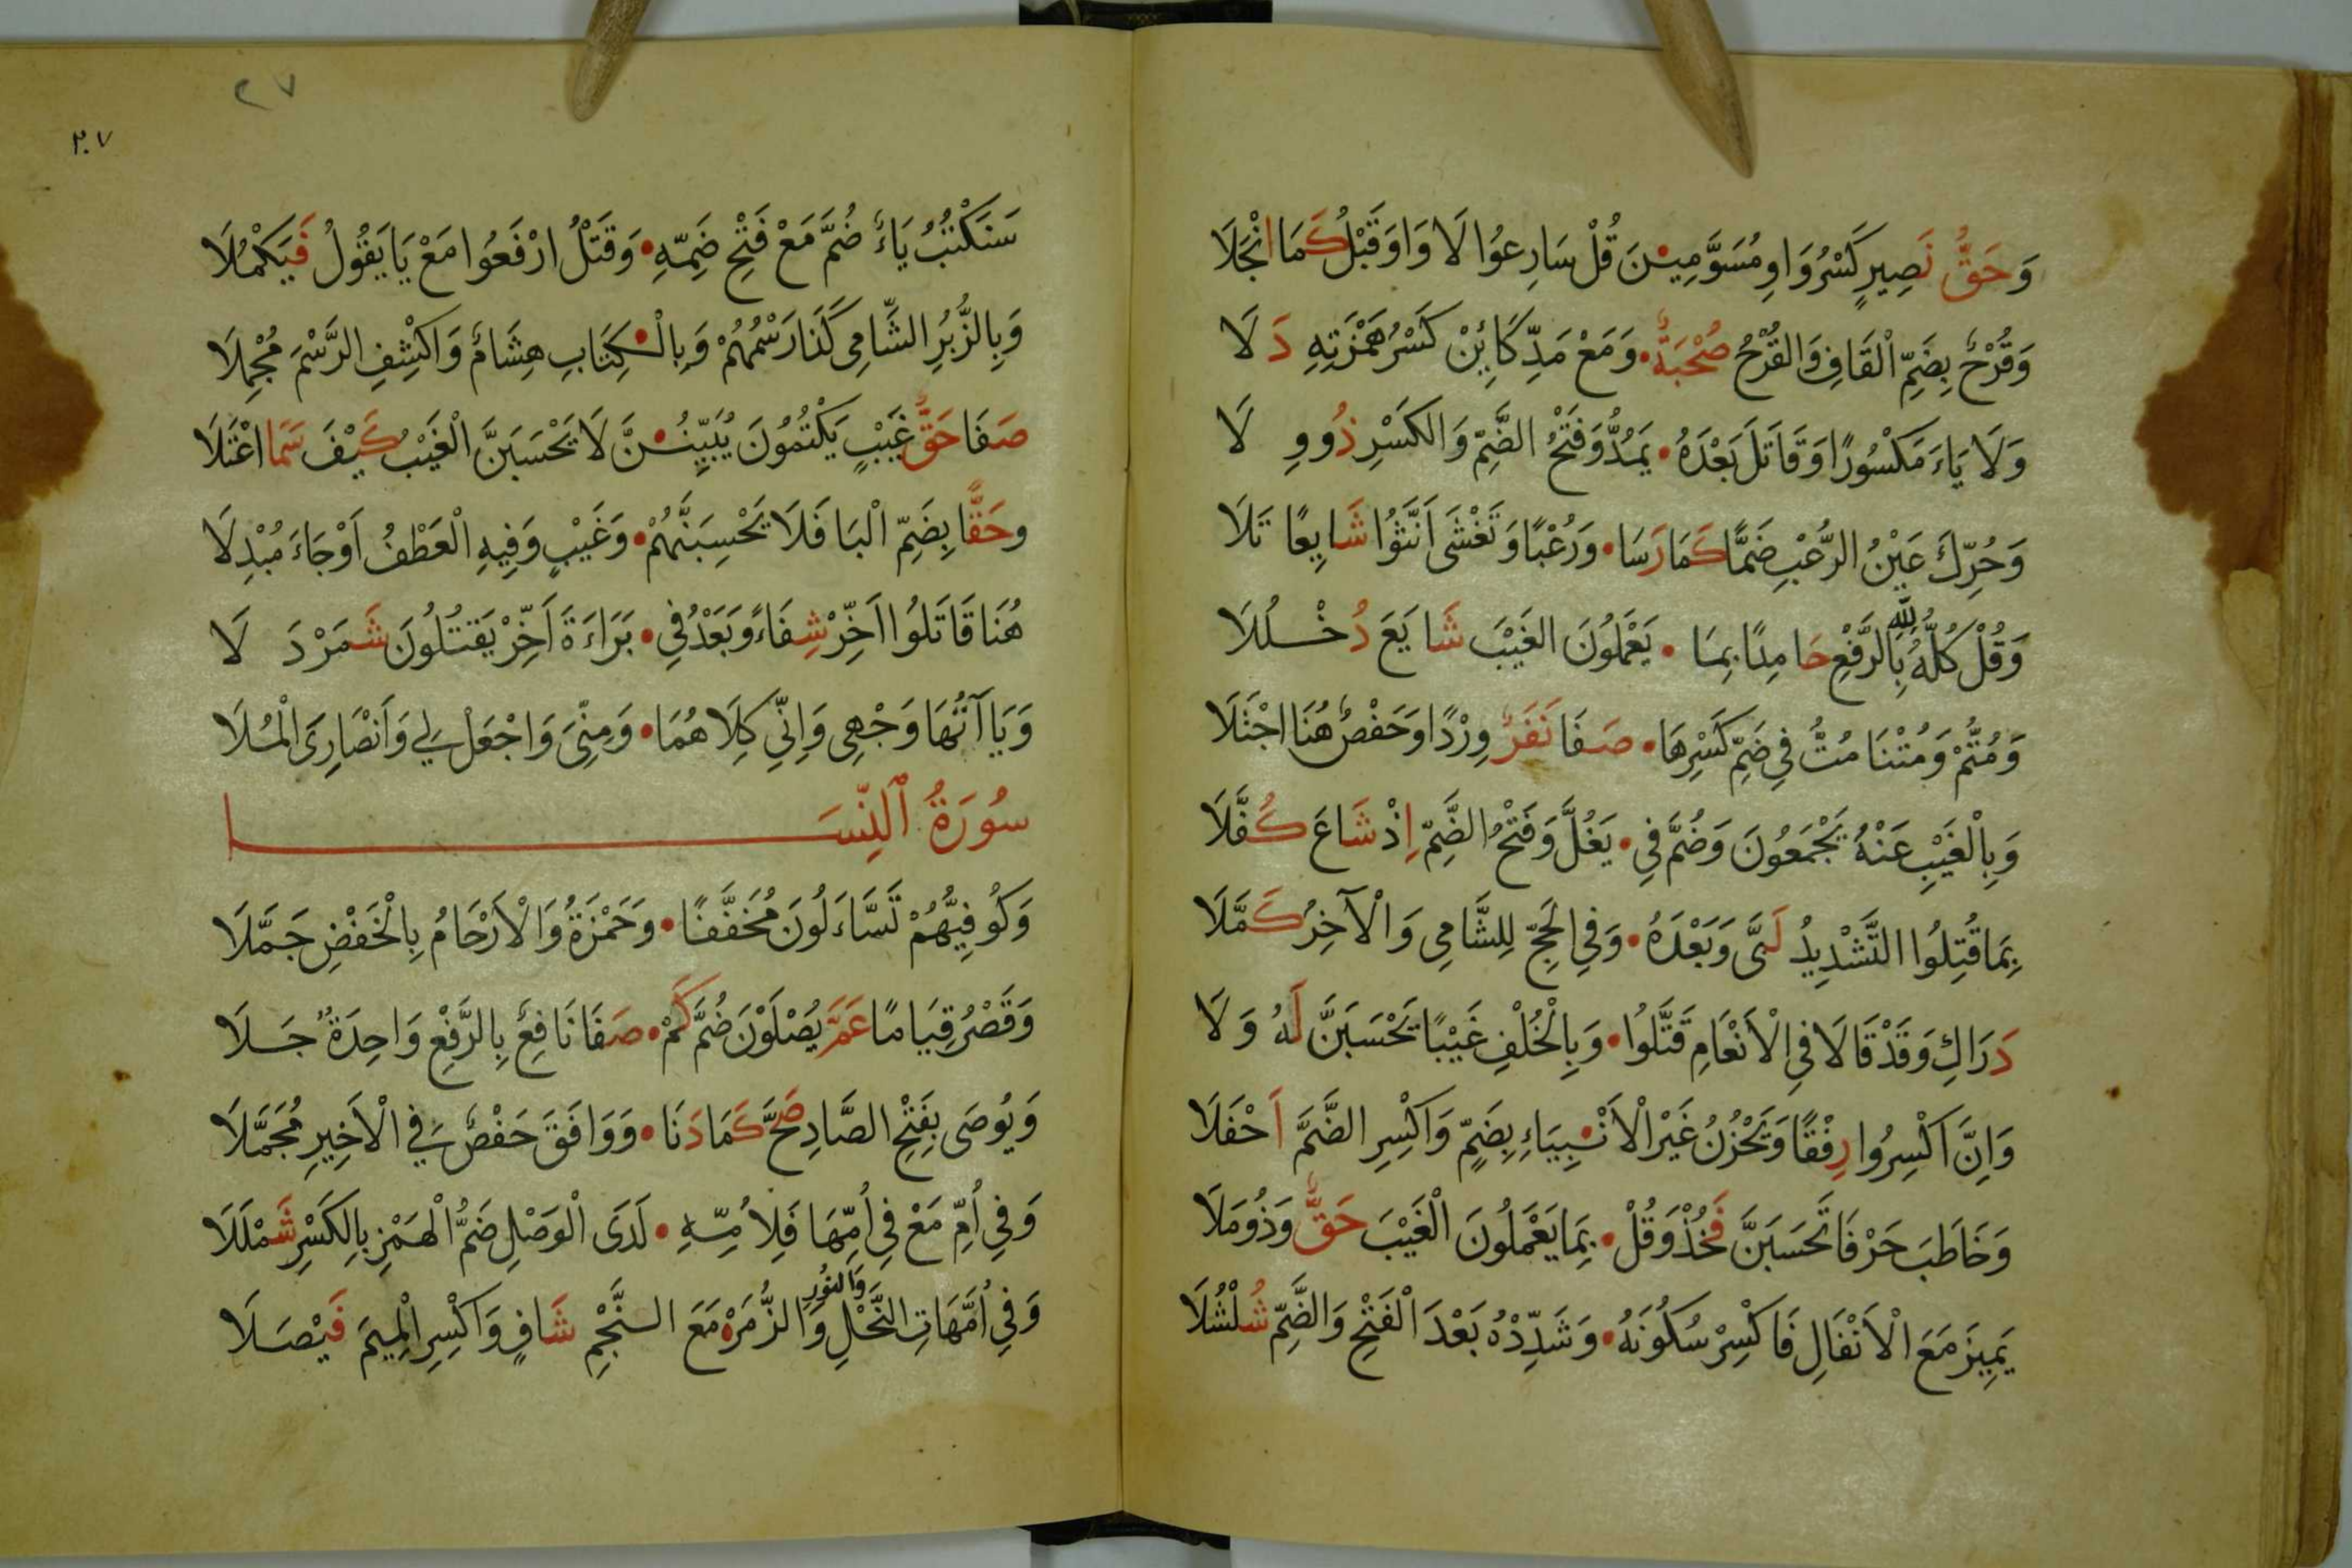 وَحَقُّ نَصِيرٍ كَسْرُ وَاوِ مُسَوَّمِيْنَ قُلْ سَارِعُوا لَا وَاوَ قَبْلُ كَمَا انْجَلَا
وَقُرْحٌ بِضَمِّ الْقَافِ وَالْقُرْحُ صُحْبَةٌ • وَمَعْ مَدِّ كَائِنْ كَسْرُ هَمْزَتِهِ دَلَا
وَلَا يَاءَ مَكْسُورًا وَقَاتَلَ بَعْدَهُ • يَمُدُّ وَفَتْحُ الضَّمِّ وَالكَسْرِ ذُو وِلَا
وَحُرِّكَ عَيْنُ الرُّعْبِ ضَمًّا كَمَا رَسَا • وَرُعْبًا وَتَغْشَى اَنَّثُوا شَايِعًا تَلَا
وَقُلْ كُلُّهُ لِلّٰهِ بِالرَّفْعِ حَامِدًا بِمَا • يَعْمَلُونَ الغَيْبَ شَايَعَ دُخْلُلَا
وَمُتُّمْ وَمُتْنَا مُتُّ فِي ضَمِّ كَسْرِهَا • صَفَا نَفَرٌ وِرْدًا وَحَفْصٌ هُنَا اجْتَلَا
وَبِالْغَيْبِ عَنْهُ يَجْمَعُونَ وَضُمَّ فِي • يَغُلَّ وَفَتْحُ الضَّمِّ اِذْ شَاعَ كُفَّلَا
بِمَا قُتِلُوا التَّشْدِيدُ لَبَّى وَبَعْدَهُ • وَفِي الحَجِّ لِلشَّامِي وَالْآخِرُ كَمَّلَا
دَرَاكِ وَقَدْ قَالَا فِي الْاَنْعَامِ قَتَّلُوا • وَبِالْخُلْفِ غَيْبًا تَحْسَبَنَّ لَهُ وَلَا
وَاِنَّ اكْسِرُوا رِفْقًا وَيَحْزُنُ غَيْرَ الْاَنْبِيَاءِ بِضَمٍّ وَاكْسِرِ الضَّمَّ اَحْفَلَا
وَخَاطَبَ حَرْفَا تَحْسَبَنَّ فَخُذْ وَقُلْ • بِمَا يَعْمَلُونَ الْغَيْبَ حَقٌّ وَذُو مَلَا
يَمِيزَ مَعَ الْاَنْفَالِ فَاكْسِرْ سُكُونَهُ • وَشَدِّدْهُ بَعْدَ الْفَتْحِ وَالضَّمِّ شُلْشُلَا
٢٧
٢٠٧
سَنَكْتُبُ يَاءٌ ضُمَّ مَعْ فَتْحِ ضَمِّهِ • وَقَتْلُ ارْفَعُوا مَعْ يَا يَقُولُ فَيَكْمُلَا
وَبِالزُّبُرِ الشَّامِي كَذَا رَسْمُهُمْ وَبِالْكِتَابِ هِشَامٌ وَاكْشِفِ الرَّسْمَ مُجْمِلَا
صَفَا حَقُّ غَيْبٍ يَكْتُمُونَ يُبَيِّنُنَّ لَا يَحْسَبَنَّ الْغَيْبُ كَيْفَ سَمَا اعْتَلَا
وحَقًّا بِضَمِّ الْبَا فَلَا يَحْسِبَنَّهُمْ • وَغَيْبٍ وَفِيهِ الْعَطْفُ اَوْجَاءَ مُبْدِلَا
هُنَا قَاتَلُوا اَخِّرْ شِفَاءً وَبَعْدُ فِي • بَرَاءَةَ اَخِّرْ يَقْتُلُونَ شَمَرْدَلَا
وَيَا آتُهَا وَجْهِي وَاِنِّي كِلَاهُمَا • وَمِنِّي وَاجْعَلْ لِي وَاَنْصَارِيَ الْمُلَا
سُورَةُ ٱلنِّسَا
وَكُوفِيُّهُمْ تَسَّاءَلُونَ مُخَفَّفًا • وَحَمْزَةُ وَالْاَرْحَامُ بِالْخَفْضِ جَمَّلَا
وَقَصْرُ قِيَامًا عَمَّ يُصْلَوْنَ ضُمَّ كَمْ • صَفَا نَافِعٌ بِالرَّفْعِ وَاحِدَةٌ جَلَا
وَيُوصَى بِفَتْحِ الصَّادِ صَحَّ كَمَا دَنَا • وَوَافَقَ حَفْصٌ فِي الْاَخِيرِ مُجَمَّلَا
وَفِي اُمِّ مَعْ فِي اُمِّهَا فَلِاُمِّهِ • لَدَى الْوَصْلِ ضَمُّ الْهَمْزِ بِالكَسْرِ شَمْلَلَا
وَفِي اُمَّهَاتِ النَّحْلِ وَالنُّورِ وَالزُّمَرْ مَعَ النَّجْمِ شَافٍ وَاكْسِرِ الْمِيمَ فَيْصَلَا